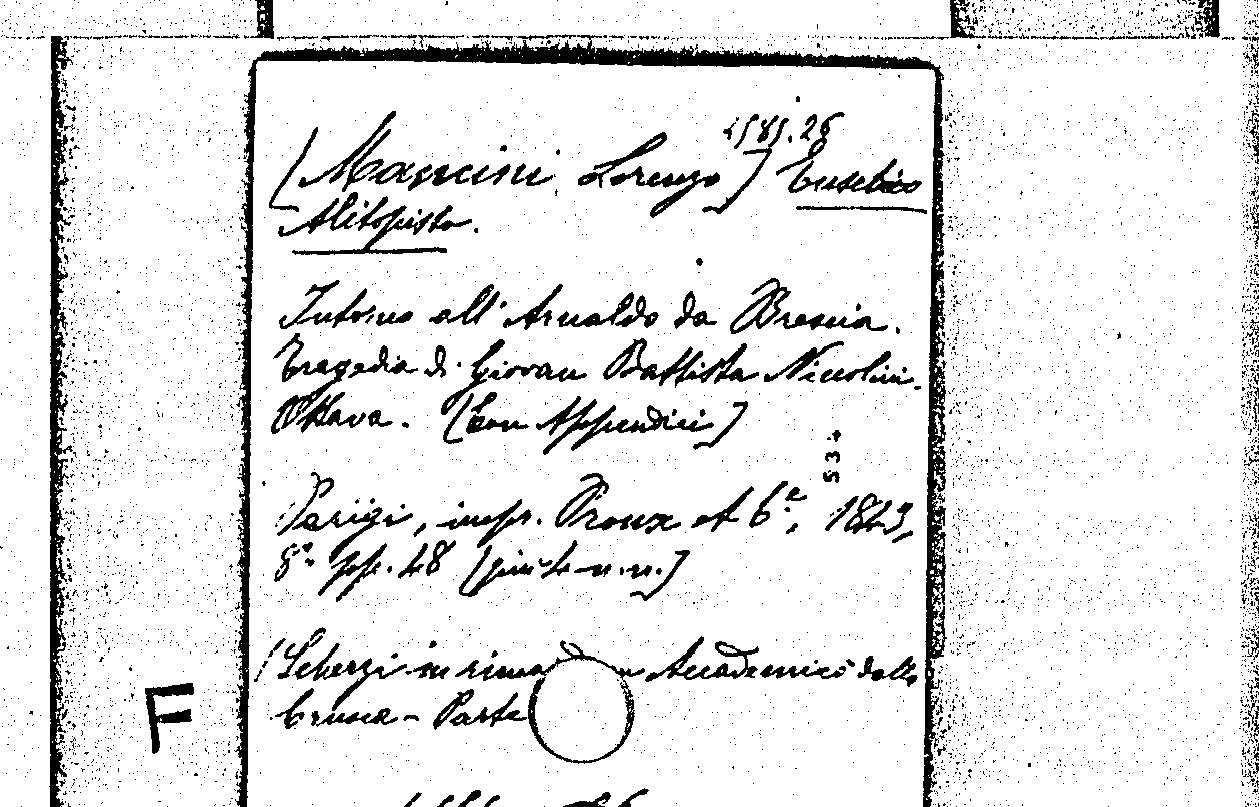 4585.26
[Mancini Lorenzo] Eusebio
Alitofisto.
Intorno all' Arnaldo da Brescia.
Tragedia di Giovan Battista Niccolini.
Ottava. [Con Appendici]
534
Parigi, impr. Proux et C.e, 1843,
8°. pp. 48 [più 4 n.n.]
(Scherzi in rima d un Accademico della
Crusca - Parte
F